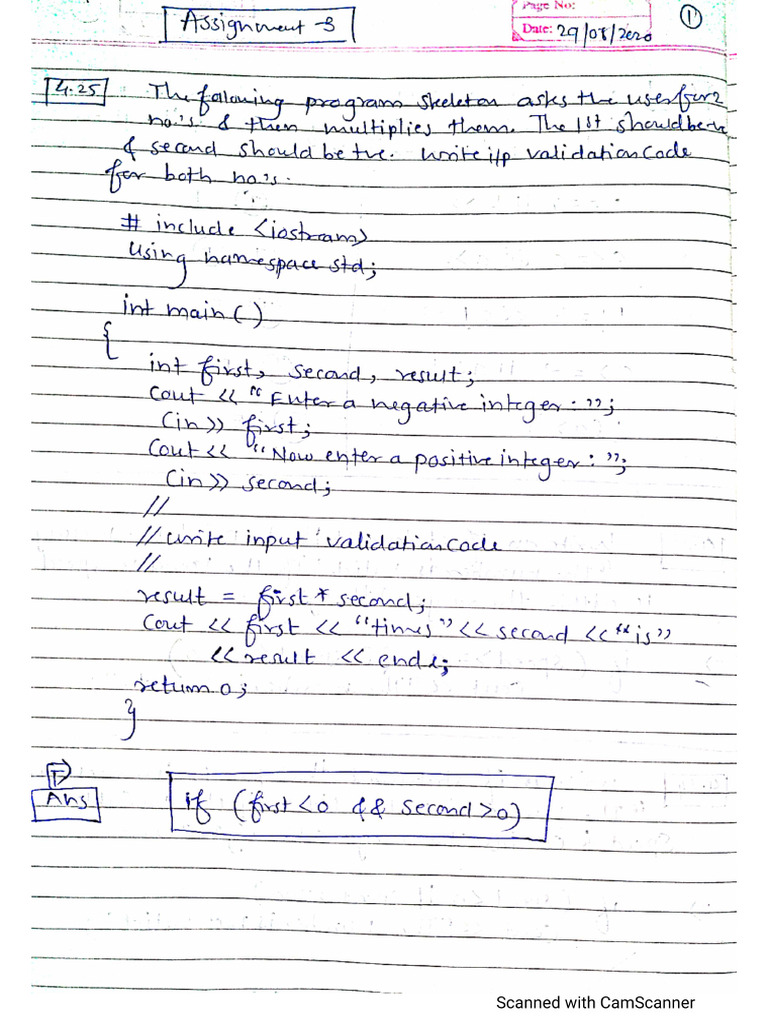 Assignment-3
Page No:
Date: 29/08/2020
1
4.25 The following program skeleton asks the user for 2
no's. & then multiplies them. The 1st should be -ve
& second should be +ve. write i/p validation Code
for both no's.
# include <iostream>
using namespace std;
int main()
{
int first, second, result;
Cout << "Enter a negative integer: ";
Cin >> first;
Cout << "Now enter a positive integer: ";
Cin >> second;
//
// write input validation Code
//
result = first * second;
Cout << first << "times" << second << "is"
<< result << endl;
return 0;
}
Ans
if (first<0 && second>0)
Scanned with CamScanner